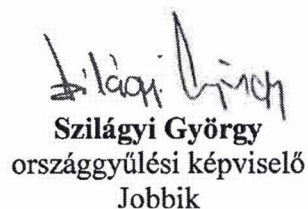 Szilágyi György
Szilágyi György
országgyűlési képviselő
Jobbik